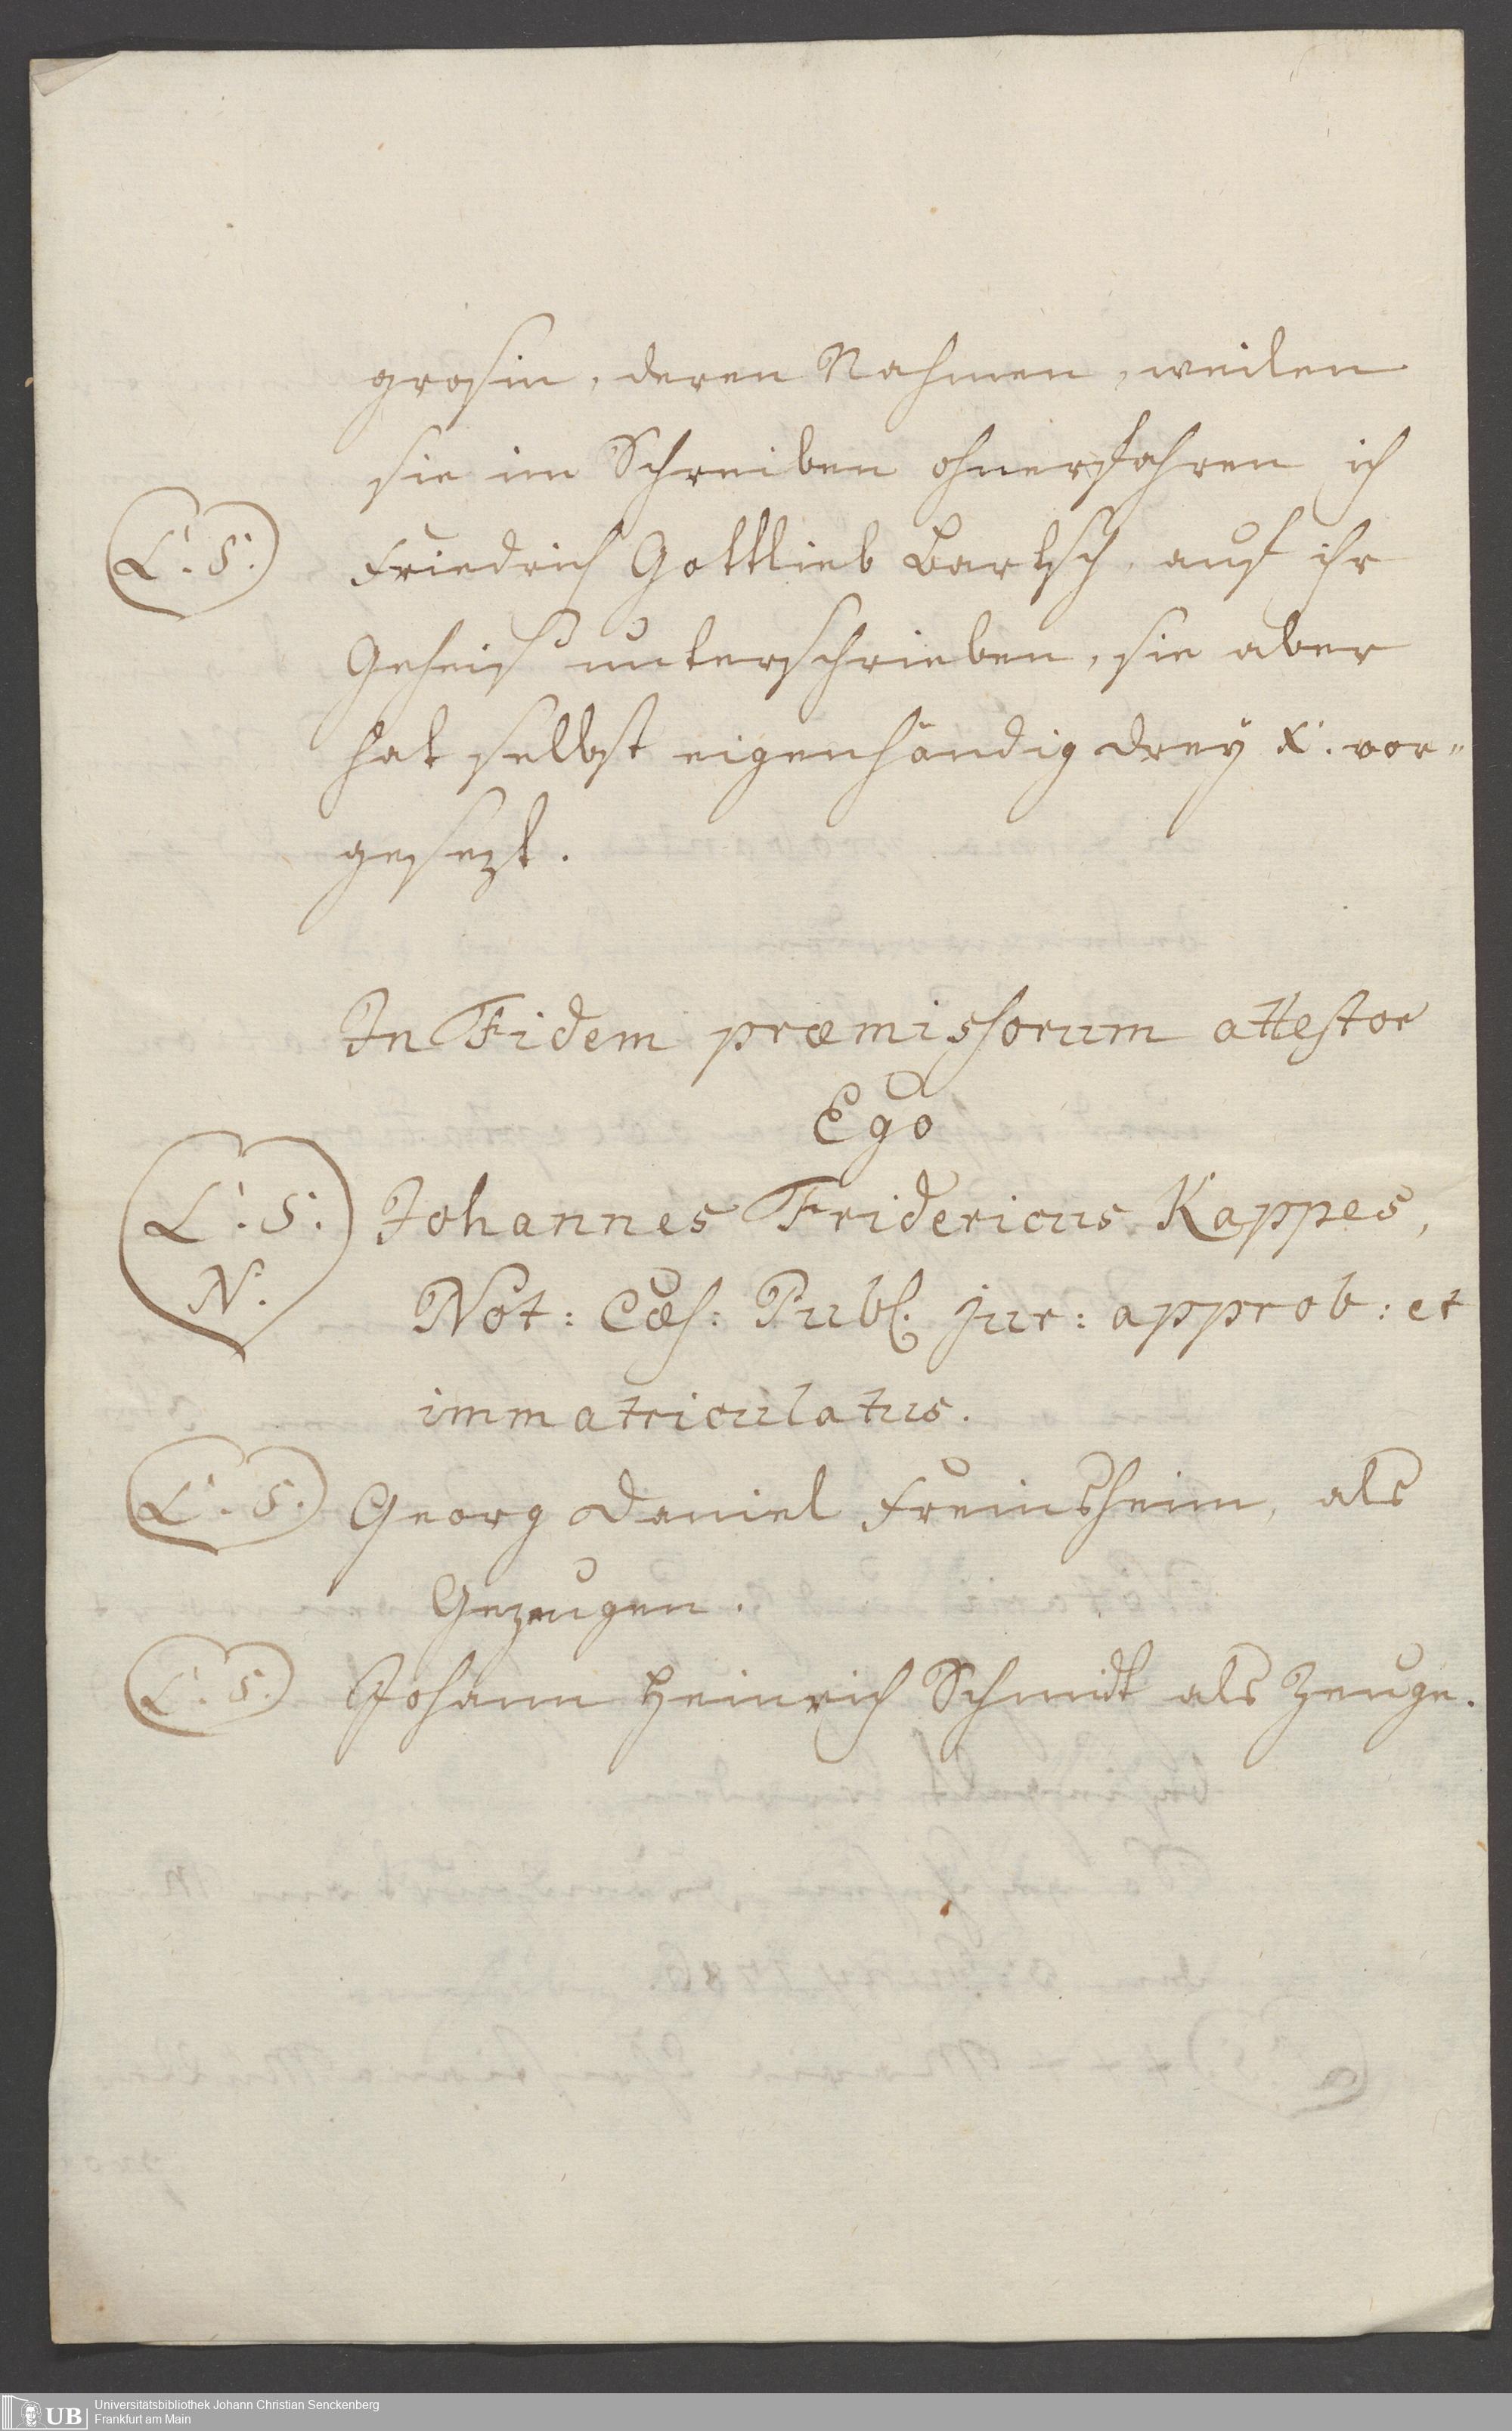 grosin, deren Nahmen, weilen
sie im Schreiben ohnerfahren ich
L. S. Friedrich Gottlieb Bartsch, auf ihr
Geheiß unterschrieben, sie aber
hat selbst eigenhändig drey X. vor„
gesezt.
In Fidem præmissorum attestor
Ego
L. S. Johannes Fridericus Kappes,
N. Not: Cæs: Publ. jur: approb: et
immatriculatus.
L. S. Georg Daniel Freinsheim, als
Gezeugen.
L. S. Johann Heinrich Schmidt als Zeuge.
UB Universitätsbibliothek Johann Christian Senckenberg
Frankfurt am Main